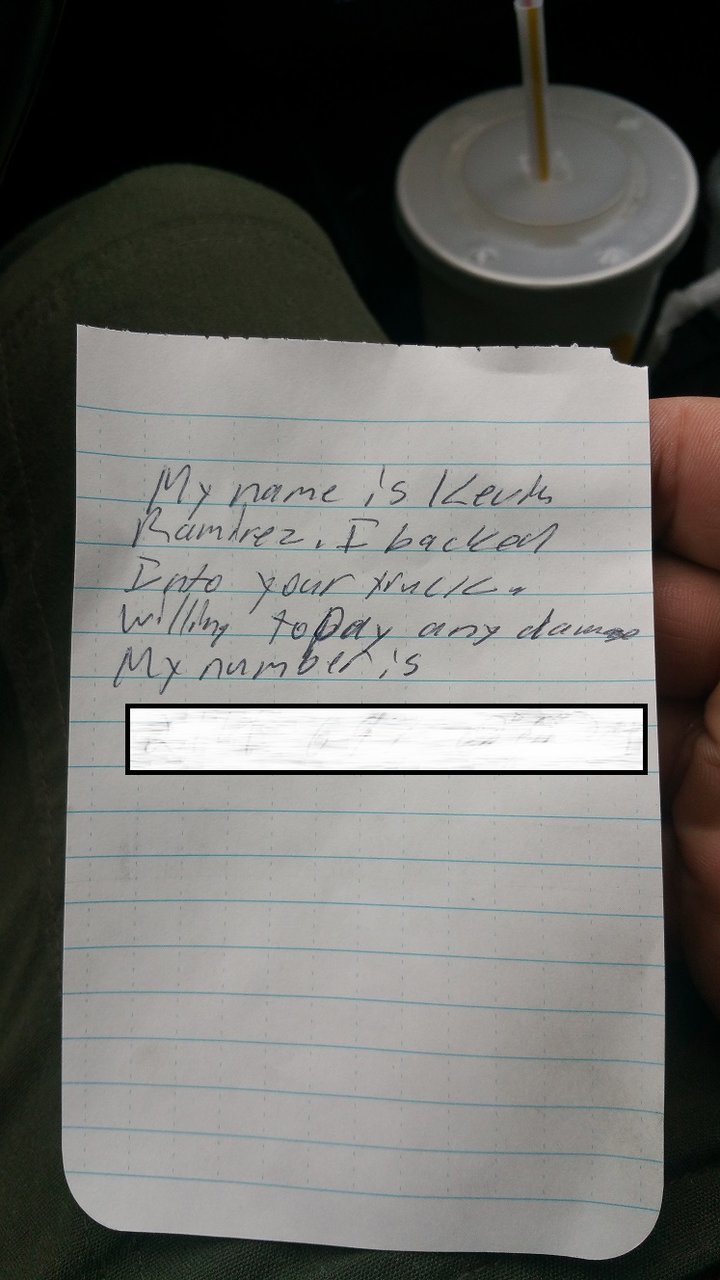 My name is Kevin
Ramirez. I backed
Into your truck.
Willing to pay any damage
My number is